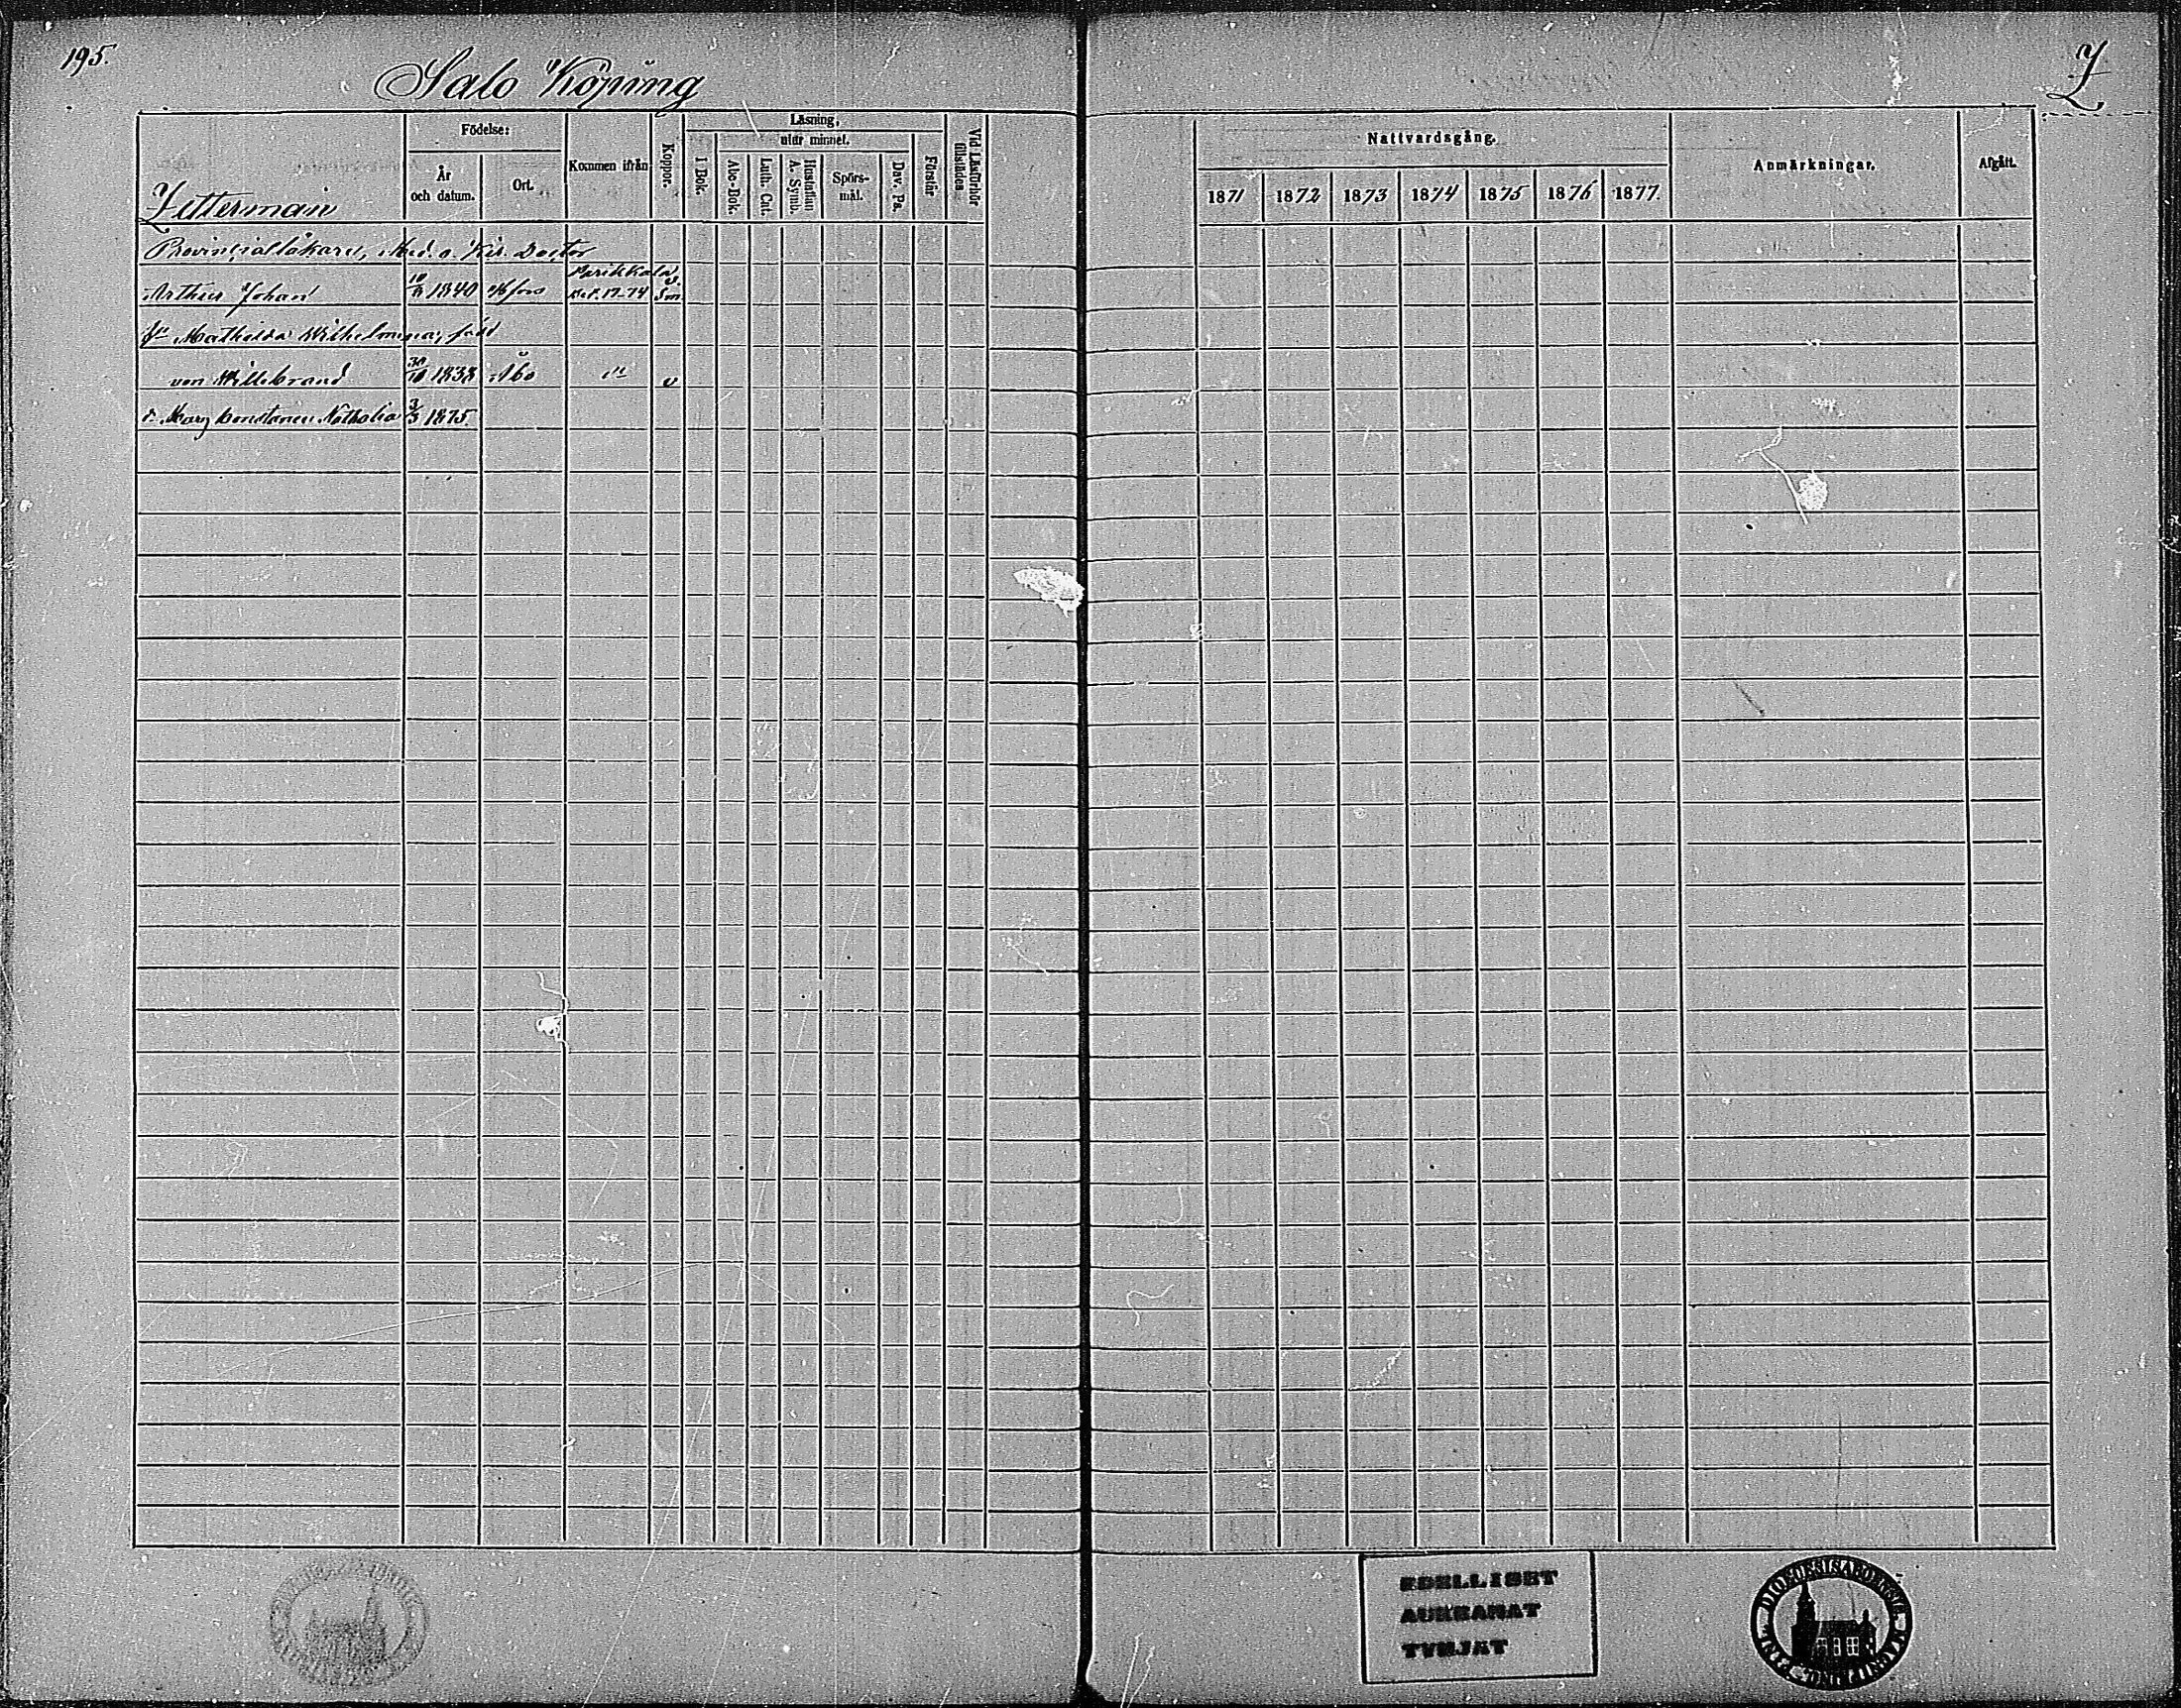 195.
Salo Köping
Z
Födelse:
År
och datum.
Ort.
Kommen ifrån
Koppor.
Läsning,
I Bok.
utur minnet.
Abc-Bok.
Luth. Cat.
Hustaflan
A. Symb.
Spörs-
mål.
Dav. Ps.
Förstår
Vid Läsförhör
tillstädes
Nattvardsgång.
1871 1872 1873 1874 1875 1876 1877.
Anmärkningar.
Afgått.
Zitterman
Provinsialläkaren, Med. o. Kir. Doctor
Arthur Johan 1840 Hfors Parikkala 17-74 v. Sm
Mathilda Wilhelmina, född
von Willebrand 30/10 1838 Åbo v
d. Mary Constance Nathalia 3/3 1875.
EDELLISET
AUKEAMAT
TYHJÄT